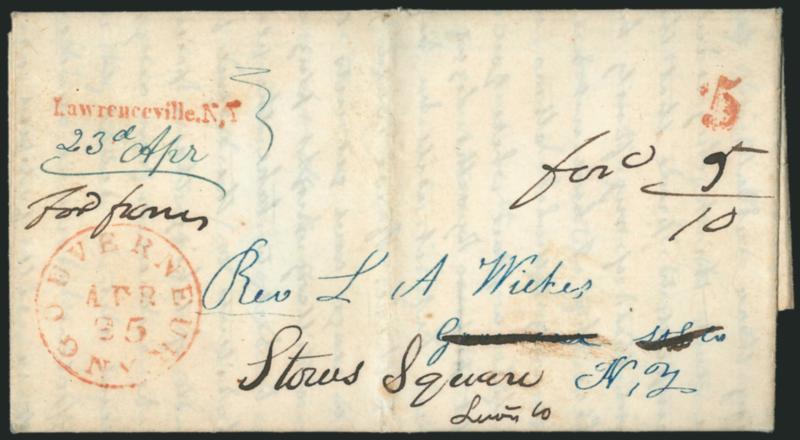 Lawrenceville.N,Y
23d Apr
Ford from
GOUVERNEUR N Y
APR
25
5
ford 5
10
Rev L A Wickes
St L Co
Stows Square N,Y
Lewis Co